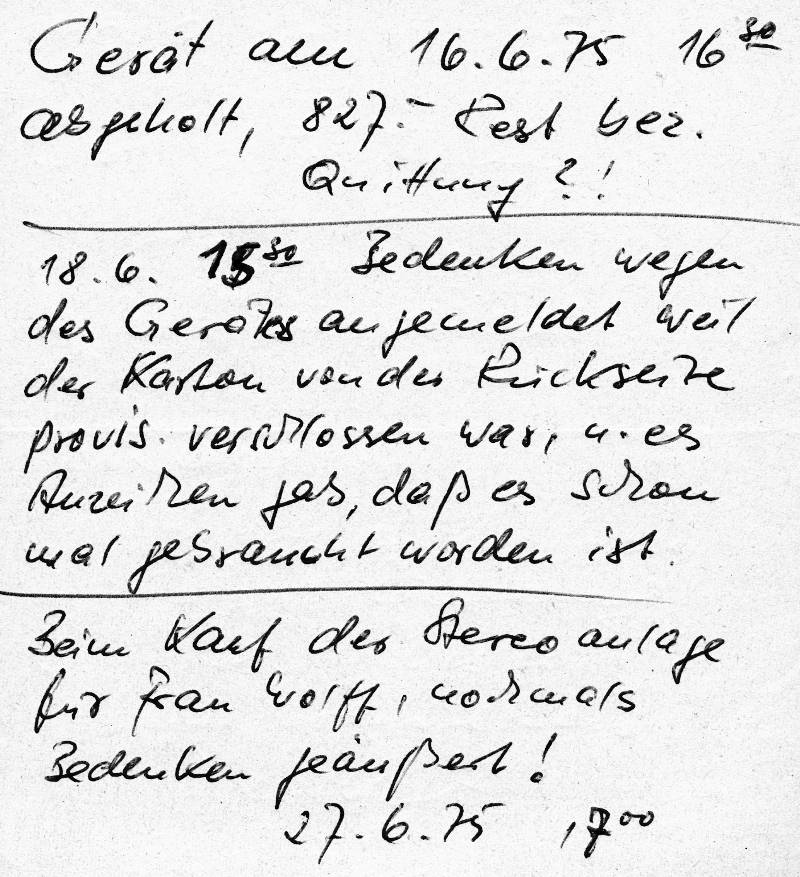 Gerät am 16.6.75 16³⁰
abgeholt, 827.- Rest bez.
Quittung ?!
18.6. 15³⁰ Bedenken wegen
des Gerätes angemeldet weil
der Karton von der Rückseite
provis. verschlossen war, u. es
Anzeichen gab, daß es schon
mal gebraucht worden ist.
Beim Kauf der Stereoanlage
für Frau Wolff, nochmals
Bedenken geäußert!
27.6.75 17⁰⁰